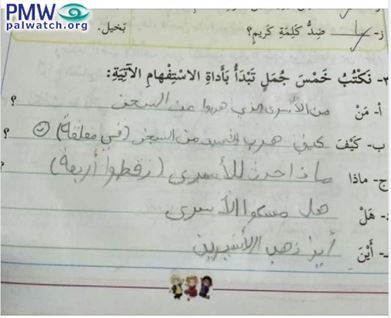 PMW
palwatch.org
ز- ضِدُّ كَلِمَةِ كَريمٍ؟ بَخيل:
٣- نَكْتُبُ خَمْسَ جُمَلٍ تَبْدَأُ بِأَداةِ الاسْتِفْهامِ الآتِيَةِ:
أ- مَنْ من الأسرى الذي هربوا عن السجن ؟
ب- كَيْفَ كيف هرب من السجن (في معلقة)
ج- ماذا ماذا حدث للأسرى (زقطوا أربعة) ?
هَلْ هل مسكوا الأسرى
أَيْنَ أين ذهب الأسيرين